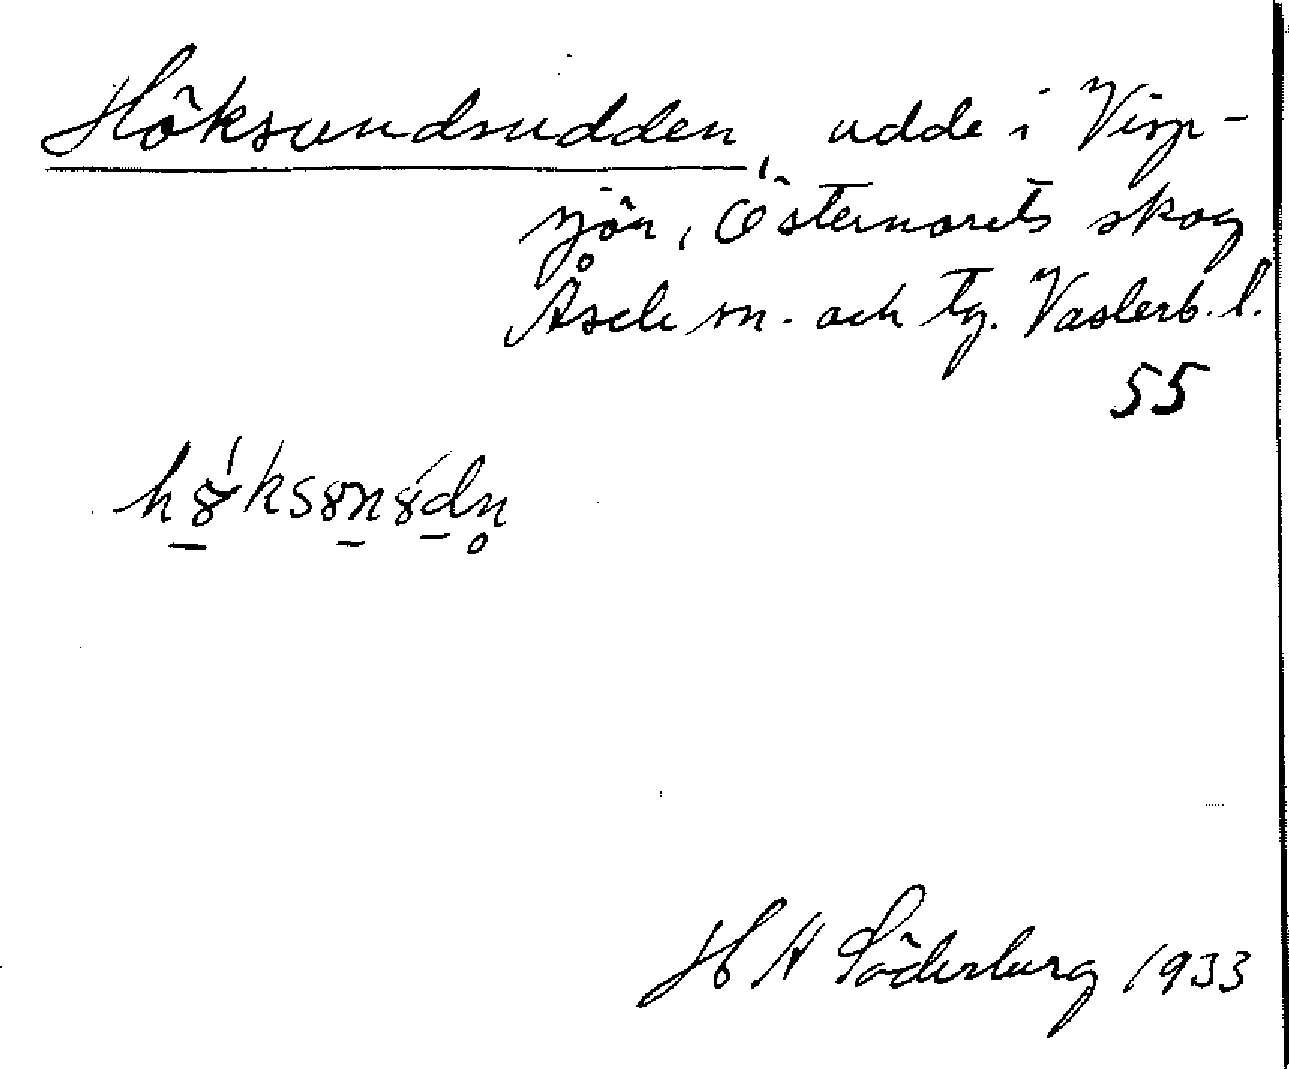 Höksundsudden, udde i Visp-
sjön, Östernorets skog
Åsele sn. och tg. Västerb. l.
55
H A Söderberg 1933